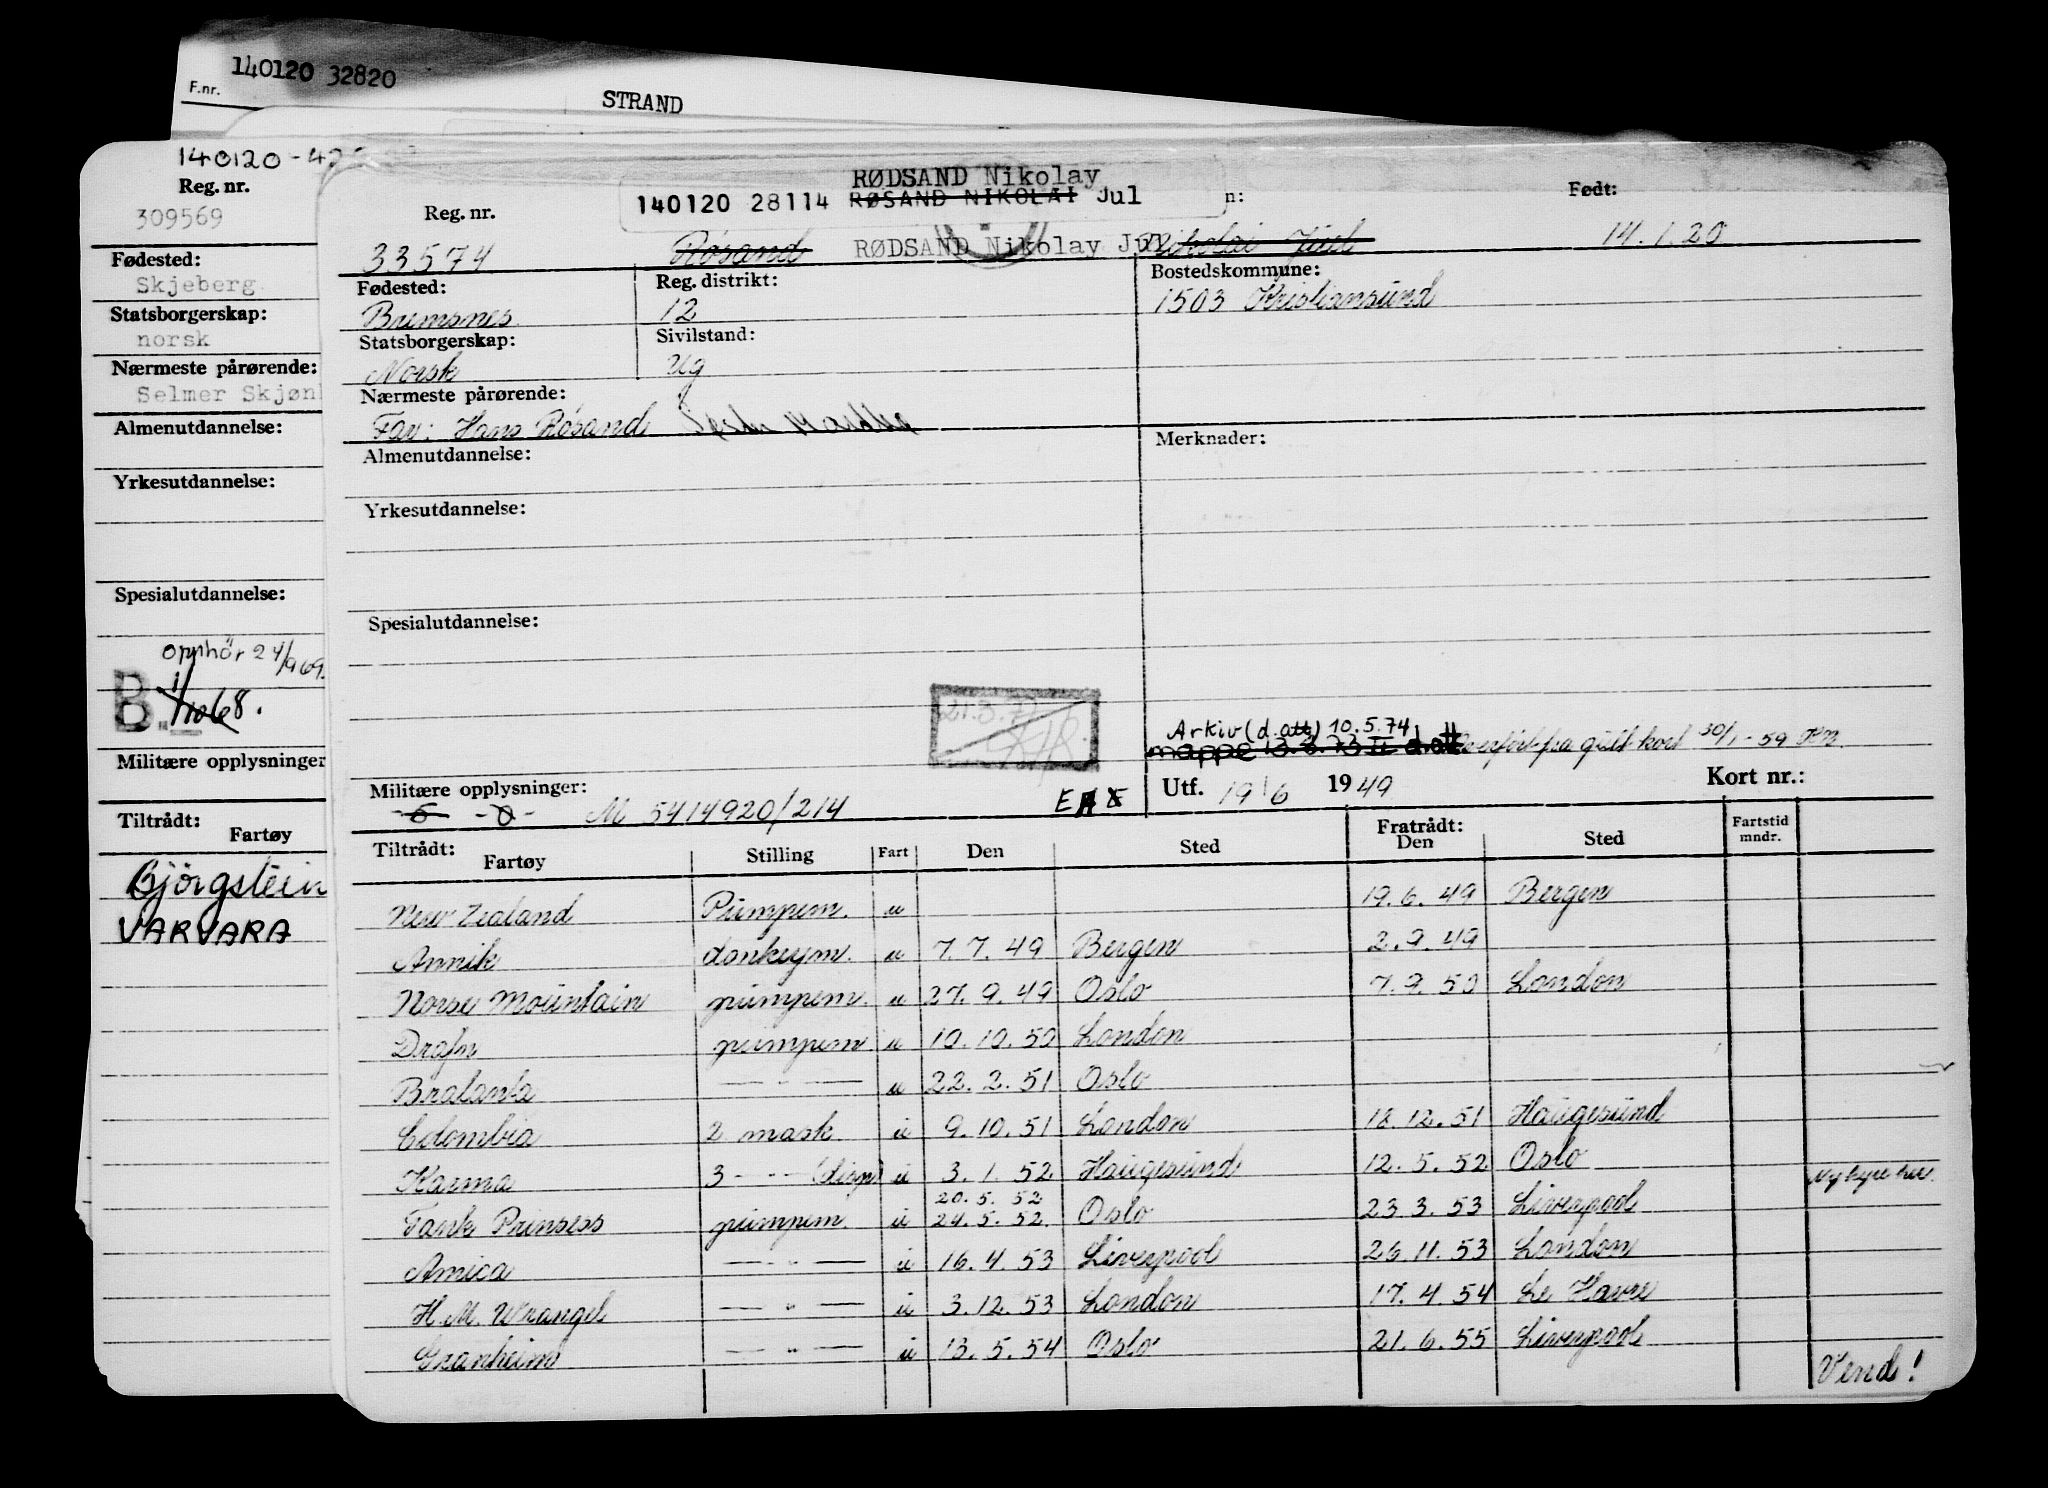 140120 32820
F.nr.
STRAND
140120-42
Reg. nr.
309569
Fødested:
Skjeberg
Statsborgerskap:
norsk
Nærmeste pårørende:
Selmer Skjøn
Almenutdannelse:
Yrkesutdannelse:
Spesialutdannelse:
opphör 24/9 69.
B
Militære opplysninger
Tiltrådt:
Fartøy
Bjørgstein
VARVARA
RØDSAND Nikolay
Reg. nr.
140120 28114 RØSAND NIKOLAI Jul
n:
Født:
33574 Røsand RØDSAND Nikolay Jul Nikolai Juel 14.1.20
Fødested: Reg. distrikt: Bostedskommune:
Bremsnes 12 1503 Kristiansund
Statsborgerskap: Sivilstand:
Norsk Ug
Nærmeste pårørende:
Far: Hans Røsand
Almenutdannelse: Merknader:
Yrkesutdannelse:
Spesialutdannelse:
Arkiv (d.att) 10.5.74
mappe 13.8.73 II d.att Overført fra gult kort 30/1-59
Militære opplysninger: Utf. 19/6 1949 Kort nr.:
M 5414920/214
Tiltrådt: Fartøy Stilling Fart Den Sted Fratrådt: Den Sted Fartstid mndr.
New Zealand Pumpem. u 19.6.49 Bergen
Annik donkeym. u 7.7.49 Bergen 2.9.49
Norse Mountain pumpem. u 27.9.49 Oslo 7.9.50 London
Drafn pumpem u 10.10.50 London
Bralanta — " — u 22.2.51 Oslo
Colombia 2 mask. u 9.10.51 London 18.12.51 Haugesund
Karma 3 - " - (disp) u 3.1.52 Haugesund 12.5.52 Oslo
20.5.52
Tank Prinsess pumpem. u 24.5.52. Oslo 23.3.53 Liverpool
Amica — " — u 16.4.53 Liverpool 26.11.53 London
H.M. Wrangel — " — u 3.12.53 London 17.4.54 Le Havre
Granheim — " — u 13.5.54 Oslo 21.6.55 Liverpool
Vend!